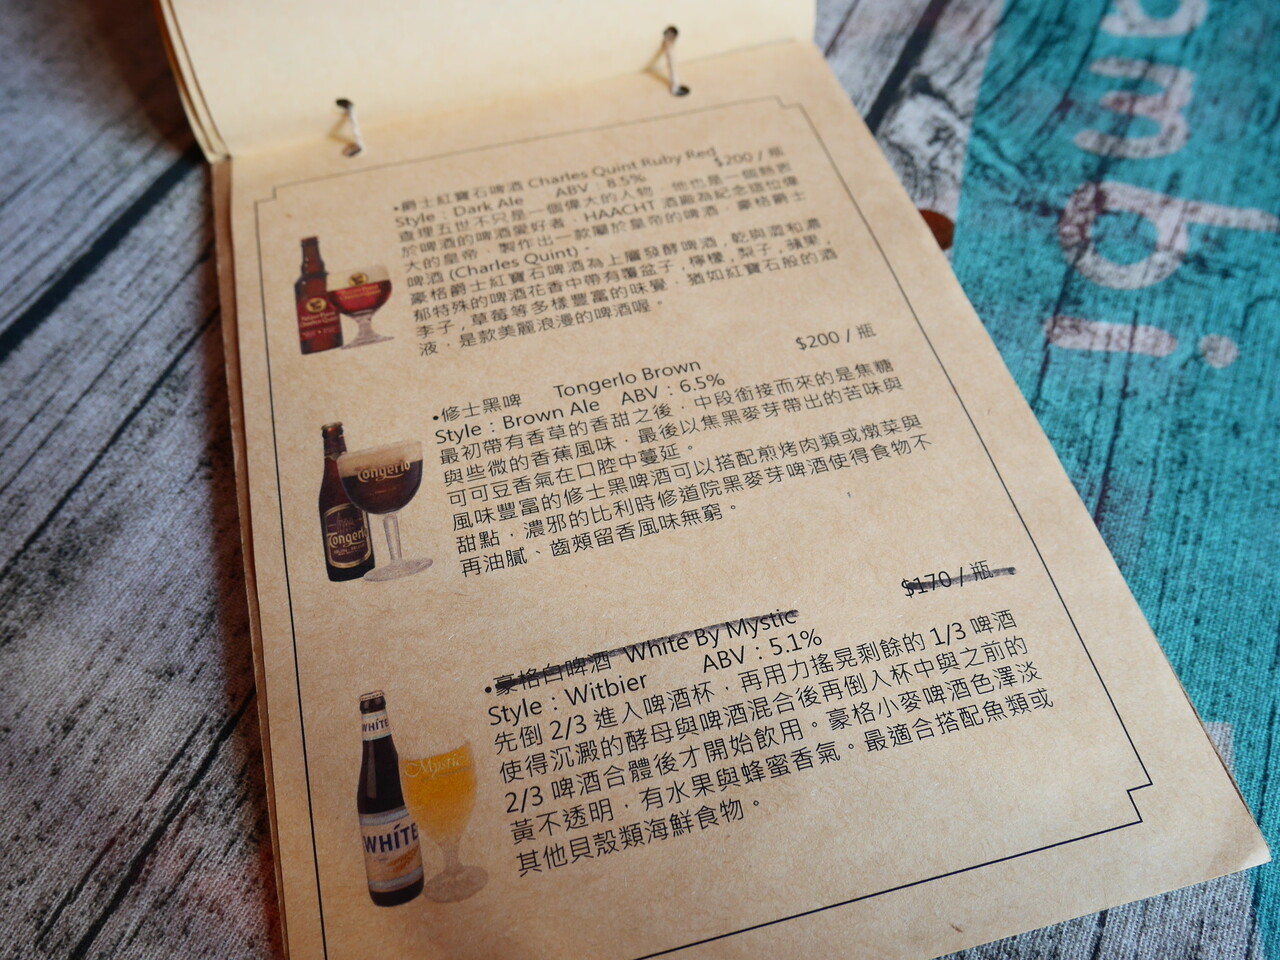 •爵士紅寶石啤酒 Charles Quint Ruby Red $200 / 瓶
Style：Dark Ale ABV：8.5%
查理五世不只是一個偉大的人物，他也是一個熱衷
於啤酒的啤酒愛好者，HAACHT 酒廠為紀念這位偉
大的皇帝，製作出一款屬於皇帝的啤酒，豪格爵士
啤酒 (Charles Quint)。
豪格爵士紅寶石啤酒為上層發酵啤酒，乾與澀和濃
郁特殊的啤酒花香中帶有覆盆子，檸檬，梨子，蘋果，
李子，草莓等多樣豐富的味覺，猶如紅寶石般的酒
液，是款美麗浪漫的啤酒喔。
$200 / 瓶
•修士黑啤 Tongerlo Brown
Style：Brown Ale ABV：6.5%
最初帶有香草的香甜之後，中段銜接而來的是焦糖
與些微的香蕉風味，最後以焦黑麥芽帶出的苦味與
可可豆香氣在口腔中蔓延。
風味豐富的修士黑啤酒可以搭配煎烤肉類或燉菜與
甜點，濃邪的比利時修道院黑麥芽啤酒使得食物不
再油膩、齒頰留香風味無窮。
$170 / 瓶
•豪格白啤酒 White By Mystic
Style：Witbier ABV：5.1%
先倒 2/3 進入啤酒杯，再用力搖晃剩餘的 1/3 啤酒
使得沉澱的酵母與啤酒混合後再倒入杯中與之前的
2/3 啤酒合體後才開始飲用。豪格小麥啤酒色澤淡
黃不透明，有水果與蜂蜜香氣。最適合搭配魚類或
其他貝殼類海鮮食物。
Tongerlo
Tongerlo
WHITE
Mystic
WHITE